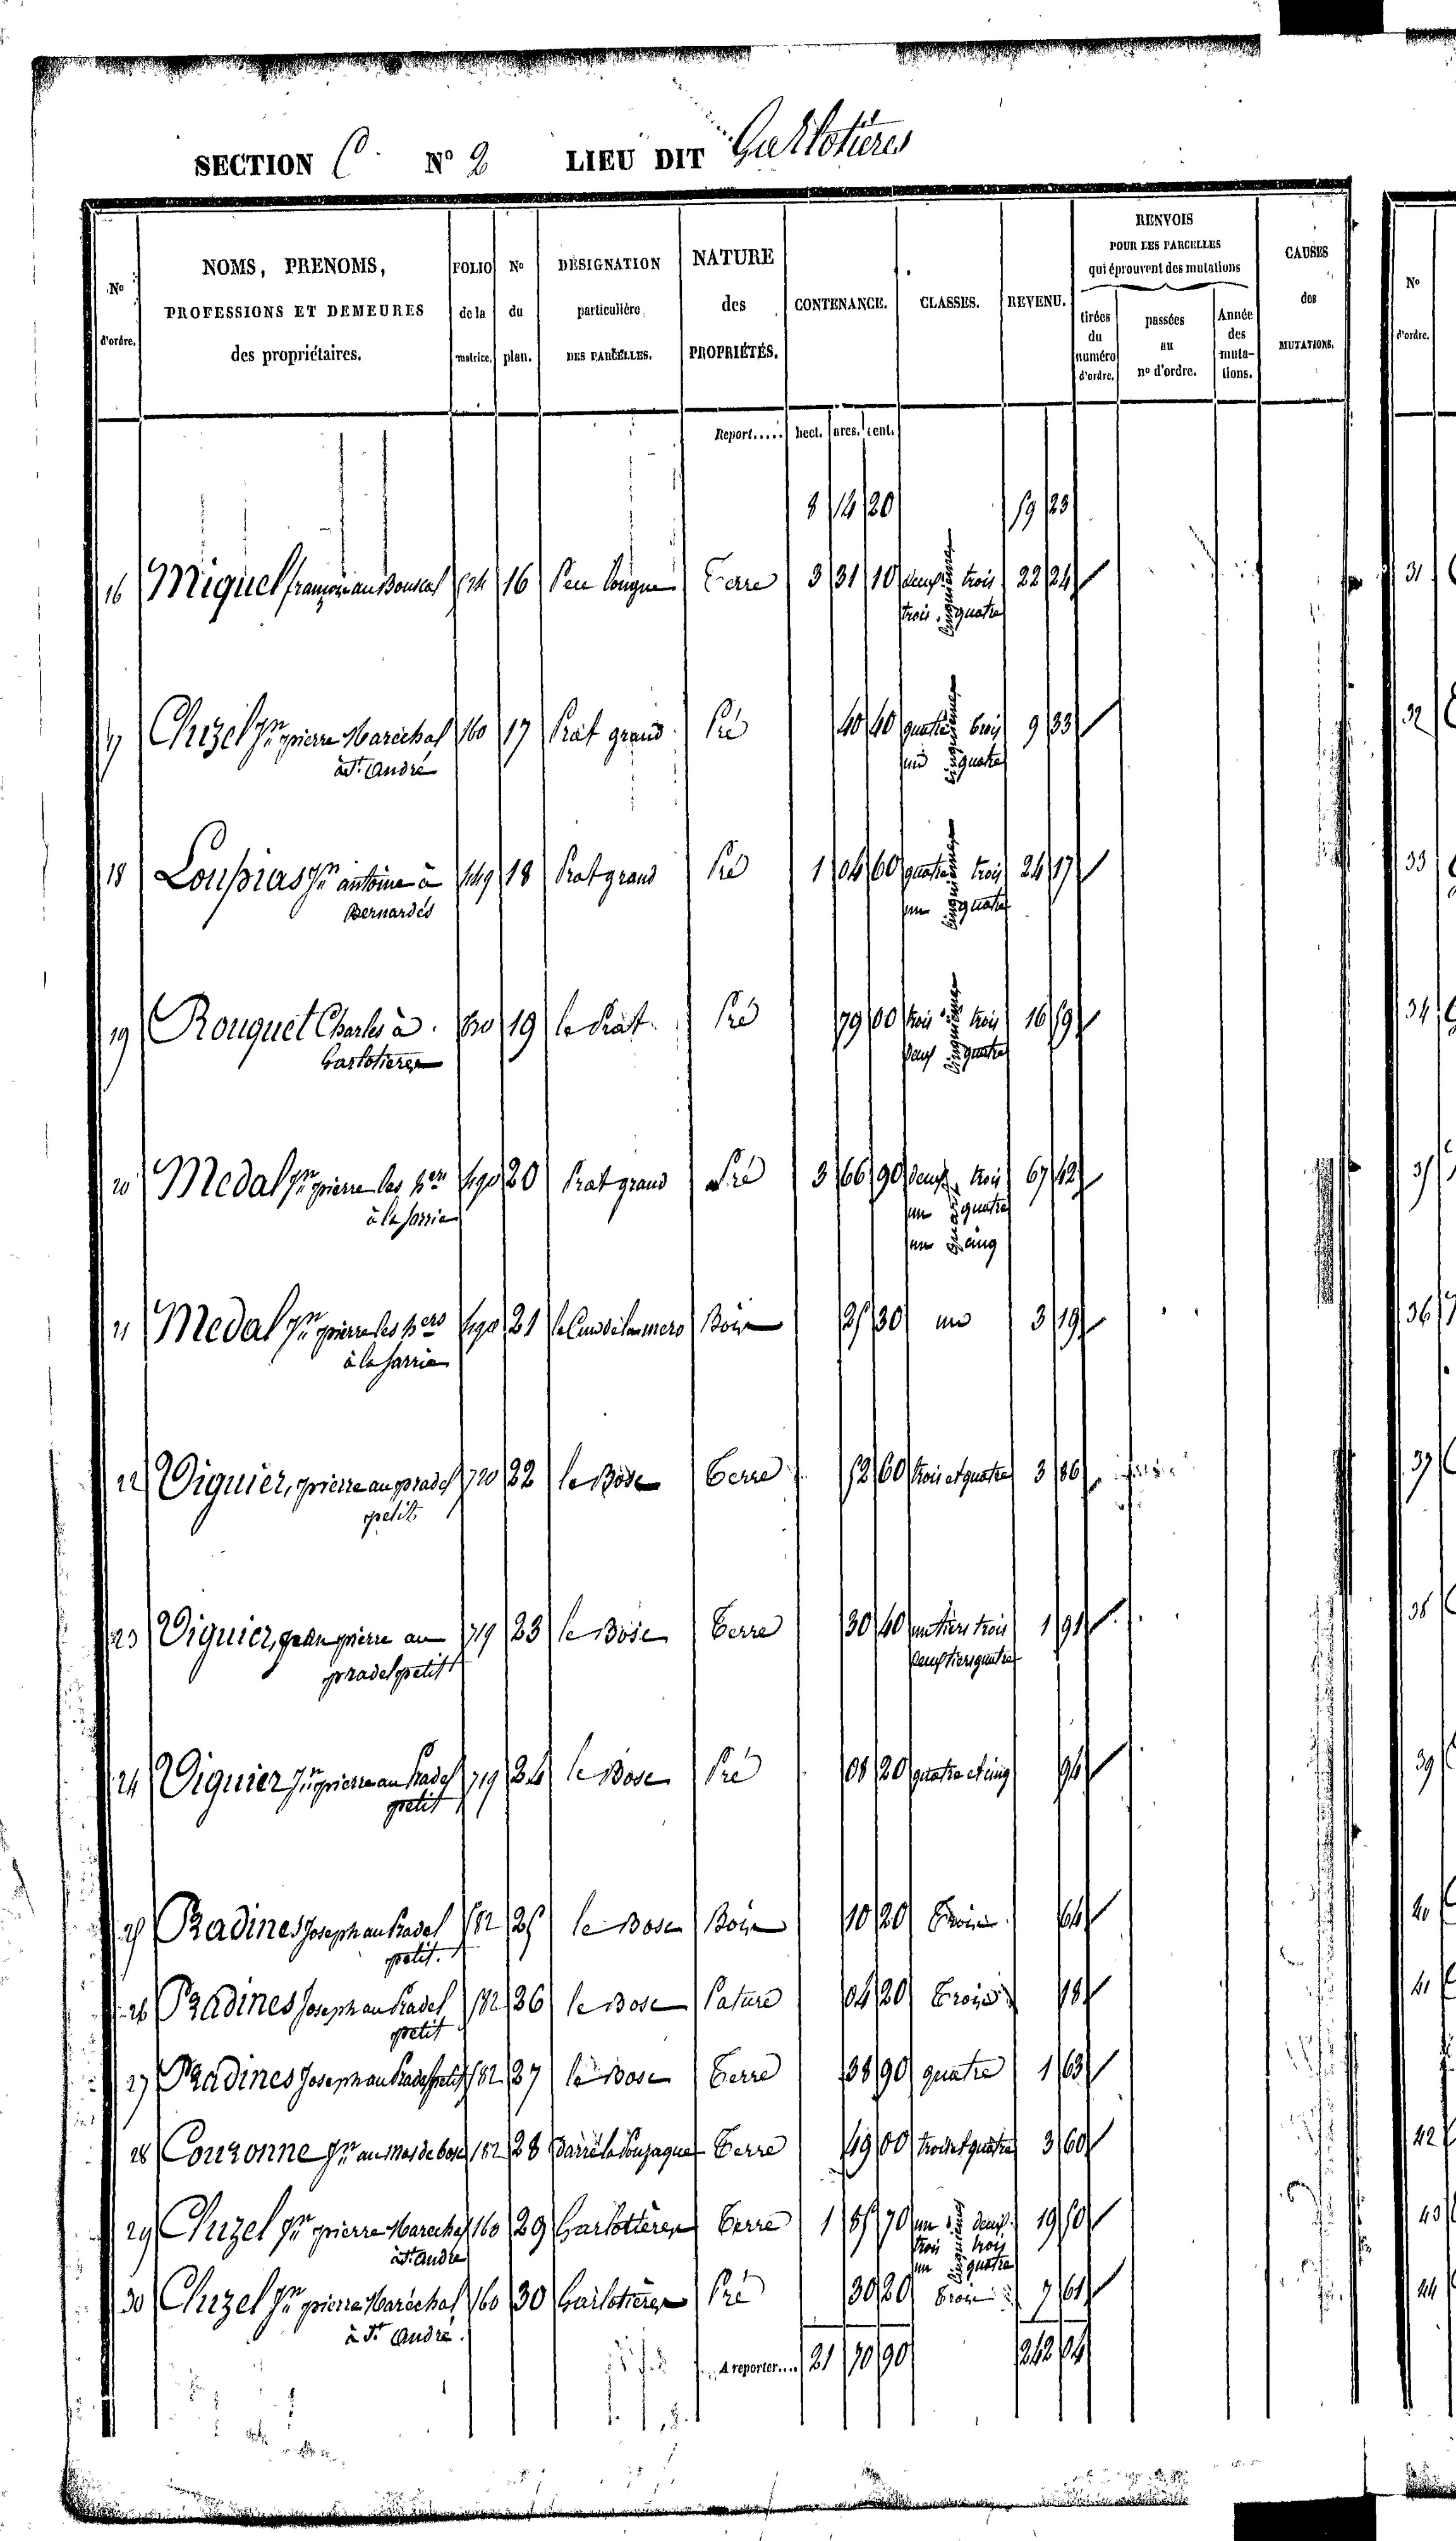 SECTION C. N° 2 LIEU DIT Garlotières
N° d'ordre.
NOMS, PRENOMS, PROFESSIONS ET DEMEURES des propriétaires.
FOLIO de la matrice.
N° du plan.
DÉSIGNATION particulière DES PARCELLES.
NATURE des PROPRIÉTÉS.
CONTENANCE.
CLASSES.
REVENU.
RENVOIS POUR LES PARCELLES qui éprouvent des mutations
tirées du numéro d'ordre.
passées au n° d'ordre.
Année des mutations.
CAUSES des MUTATIONS.
N° d'ordre.
Report..... hect. ares. cent.
8 14 20 59 23
16 Miquel françois au Bouscal 524 16 Peu longue Terre 3 31 10 deux cinquiemes trois 22 24
trois quatre
17 Chizel Jn pierre Maréchal 160 17 Prat grand Pré 40 40 quatre cinquiemes trois 9 33
à St André un quatre
18 Loupias Jn antoine à 449 18 Prat grand Pré 1 04 60 quatre cinquiemes trois 24 17
Bernardés un quatre
19 Rouquet Charles à 630 19 le Prat Pré 79 00 trois cinquiemes trois 16 59
Garlotieres deux quatre
20 Medal Jn pierre les hers 490 20 Prat grand Pré 3 66 90 deux quarts trois 67 42
à la Sarrie un quatre
un cinq
21 Medal Jn pierre les hers 490 21 Bois 25 30 un 3 19
à la Sarrie
22 Viguier, pierre au pradel 720 22 le Bosc Terre 52 60 trois et quatre 3 86
petit
23 Viguier, jean pierre au 719 23 le Bosc Terre 30 40 un tiers trois 1 91
pradel petit deux tiers quatre
24 Viguier Jn pierre au Pradel 719 24 le Bosc Pré 08 20 quatre et cinq 94
petit
25 Pradines Joseph au Pradel 582 25 le Bosc Bois 10 20 Trois 64
petit.
26 Pradines Joseph au Pradel 582 26 le Bosc Pature 04 20 Trois 18
petit
27 Pradines Joseph au Pradel petit 582 27 le Bosc Terre 38 90 quatre 1 63
28 Couzonne Jn au Mas de bosc 182 28 Darré la Pouzaque Terre 49 00 trois et quatre 3 60
29 Chizel Jn pierre Marechal 160 29 Garlottières Terre 1 85 70 un cinquiemes deux 19 50
à St andré trois trois
un quatre
30 Chizel Jn pierre Maréchal 160 30 Garlotières Pré 30 20 Trois 7 61
à St André.
A reporter.... 21 70 90 242 04
31
32
33
34
35
36
37
38
39
40
41
42
43
44